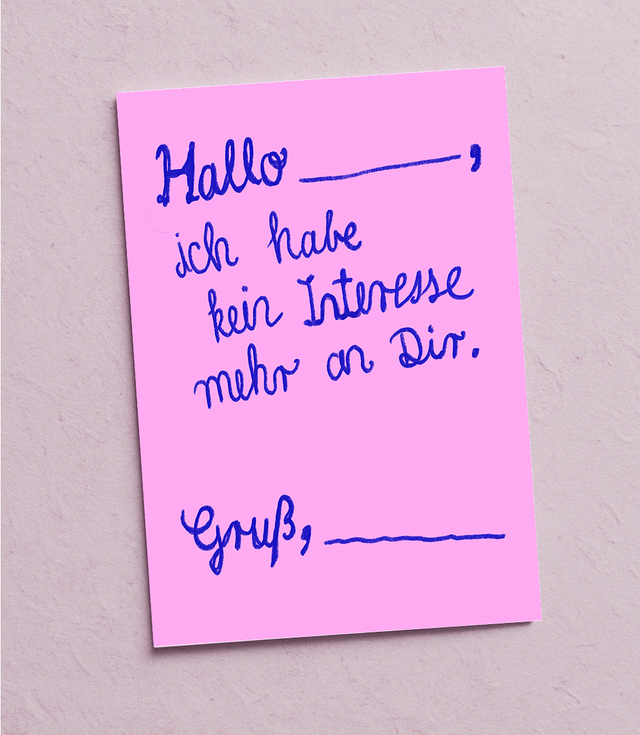 Hallo ________,
ich habe
kein Interesse
mehr an Dir.
Gruß, ________